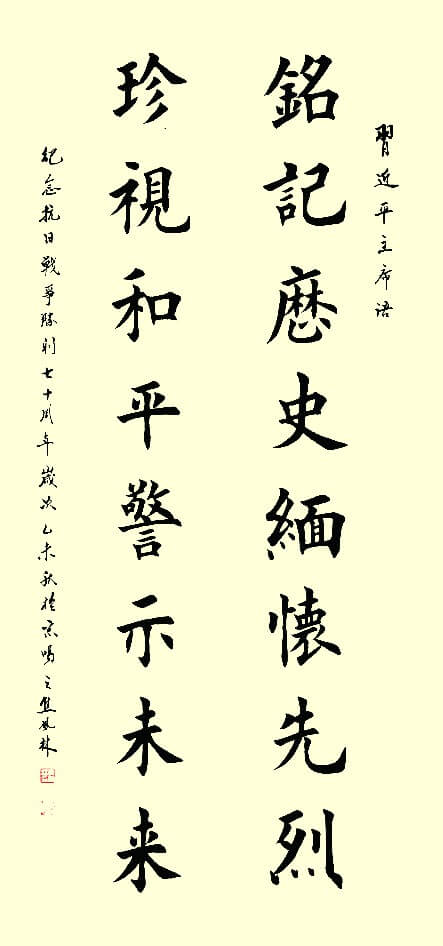 習近平主席语
銘記歷史緬懷先烈
珍視和平警示未来
纪念抗日戰爭勝利七十周年歲次乙未秋於京